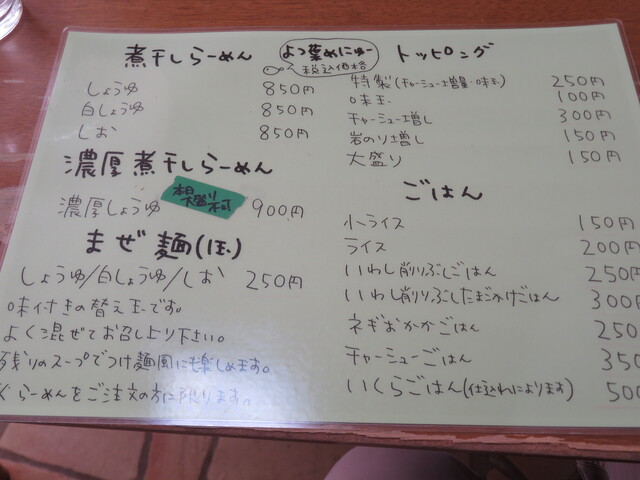 よつ葉めにゅー
税込価格
煮干しらーめん
しょうゆ 850円
白しょうゆ 850円
しお 850円
濃厚煮干しらーめん
濃厚しょうゆ 900円
本日大盛り不可
まぜ麺(1玉)
しょうゆ/白しょうゆ/しお 250円
味付きの替え玉です。
よく混ぜてお召し上り下さい。
残りのスープでつけ麺風にも楽しめます。
らーめんをご注文の方に限ります。
トッピング
特製(チャーシュー増量・味玉) 250円
味玉 100円
チャーシュー増し 300円
岩のり増し 150円
大盛り 150円
ごはん
小ライス 150円
ライス 200円
いわし削りぶしごはん 250円
いわし削りぶしたまごかけごはん 300円
ネギおかかごはん 250
チャーシューごはん 350
いくらごはん(仕込れによります) 500